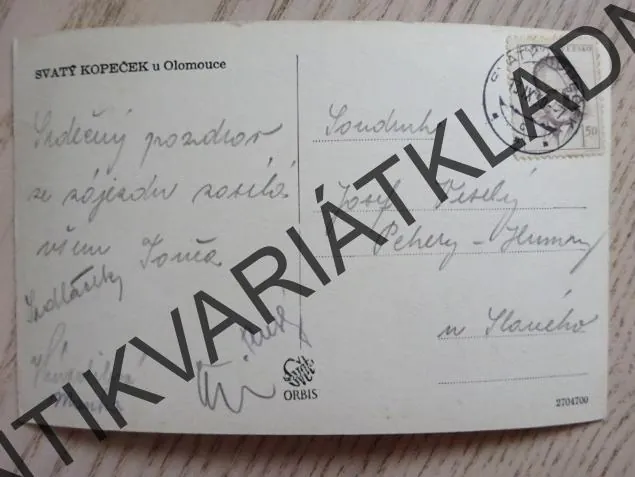 SVATÝ KOPEČEK u Olomouce
Srdečný pozdrav
ze zájezdu zasílá
všem Tonča
Sedláčky
Soudruh
Josef Veselý
Pchery - Humny
u Slaného
50
Svět
ORBIS
2704700
ANTIKVARIÁTKLADN